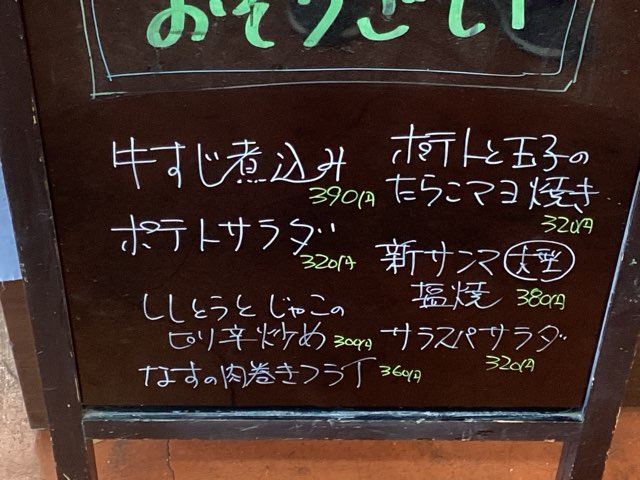 牛すじ煮込み
390円
ポテトサラダ
320円
ししとうとじゃこの
ピリ辛炒め 300円
なすの肉巻きフライ 360円
ポテトと玉子の
たらこマヨ焼き
320円
新サンマ 大型
塩焼 380円
サラスパサラダ
320円